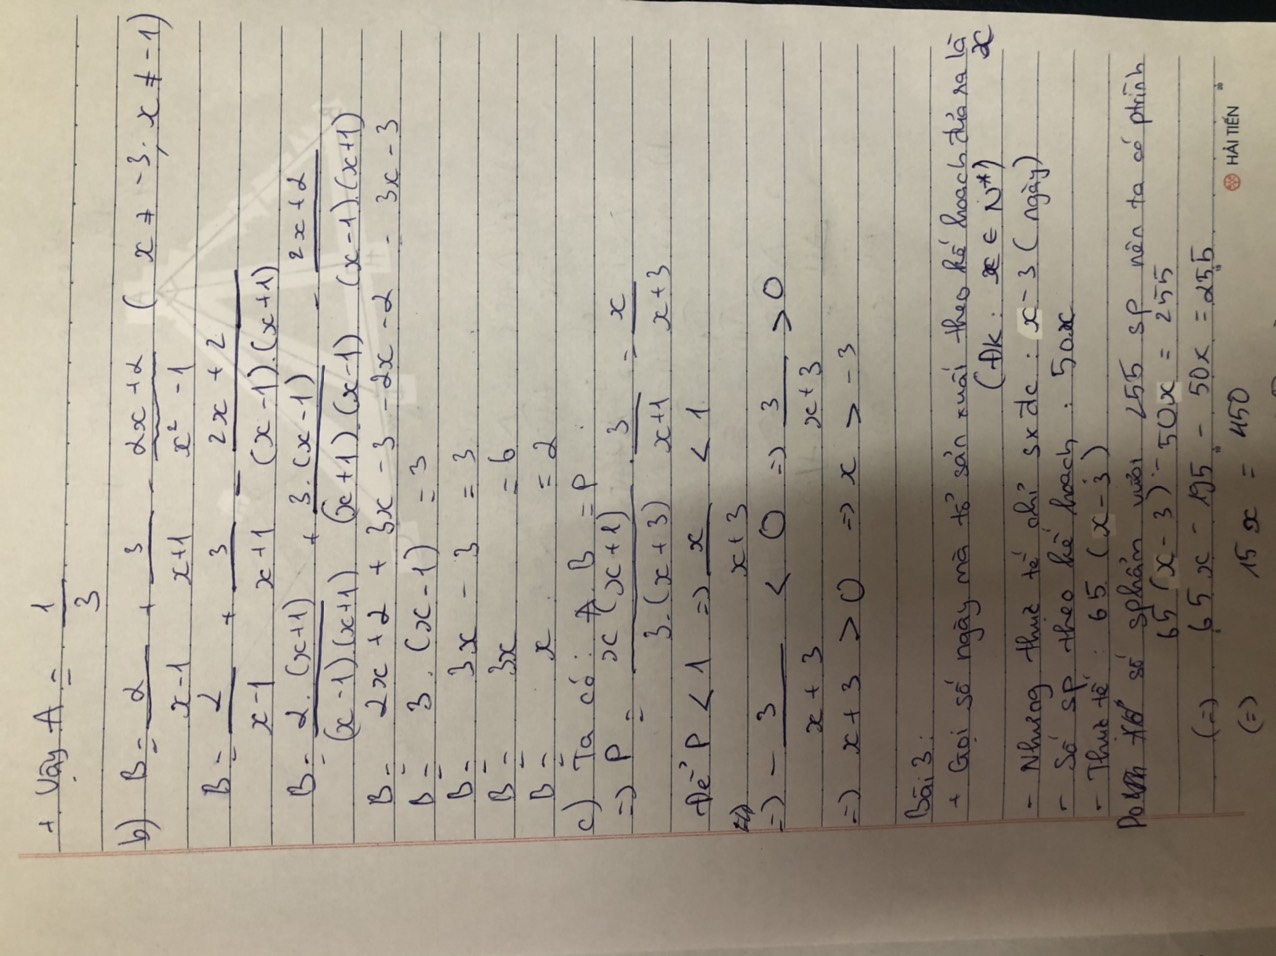 + Vậy A = 1/3
b) B = 2/(x-1) + 3/(x+1) - (2x+2)/(x² - 1) ( x ≠ -3, x ≠ -1)
B = 2/(x-1) + 3/(x+1) - (2x + 2)/((x-1).(x+1))
B = 2.(x+1)/((x-1)(x+1)) + 3.(x-1)/((x+1)(x-1)) - (2x+2)/((x-1).(x+1))
B = 2x+2 + 3x - 3 - 2x - 2 - 3x - 3
B = 3.(x-1) = 3
B = 3x - 3 = 3
B = 3x = 6
B = x = 2
c) Ta có: A. B = P
=> P = x(x+1)/(3.(x+3)) . 3/(x+1) = x/(x+3)
Để P < 1 => x/(x+3) < 1
=> -3/(x+3) < 0 => 3/(x+3) > 0
=> x+3 > 0 => x > -3
Bài 3:
+ Gọi số ngày mà tổ sản xuất theo kế hoạch đưa ra là x
(ĐK: x ∈ N*)
- Nhưng thực tế chỉ sx đc: x-3 (ngày)
- Số sp theo kế hoạch: 50x
- Thực tế: 65 (x-3)
số sphẩm vượt 255 sp nên ta có ptrình
65(x-3) - 50x = 255
(=) 65x - 195 - 50x = 255
(=) 15x = 450
HẢI TIẾN